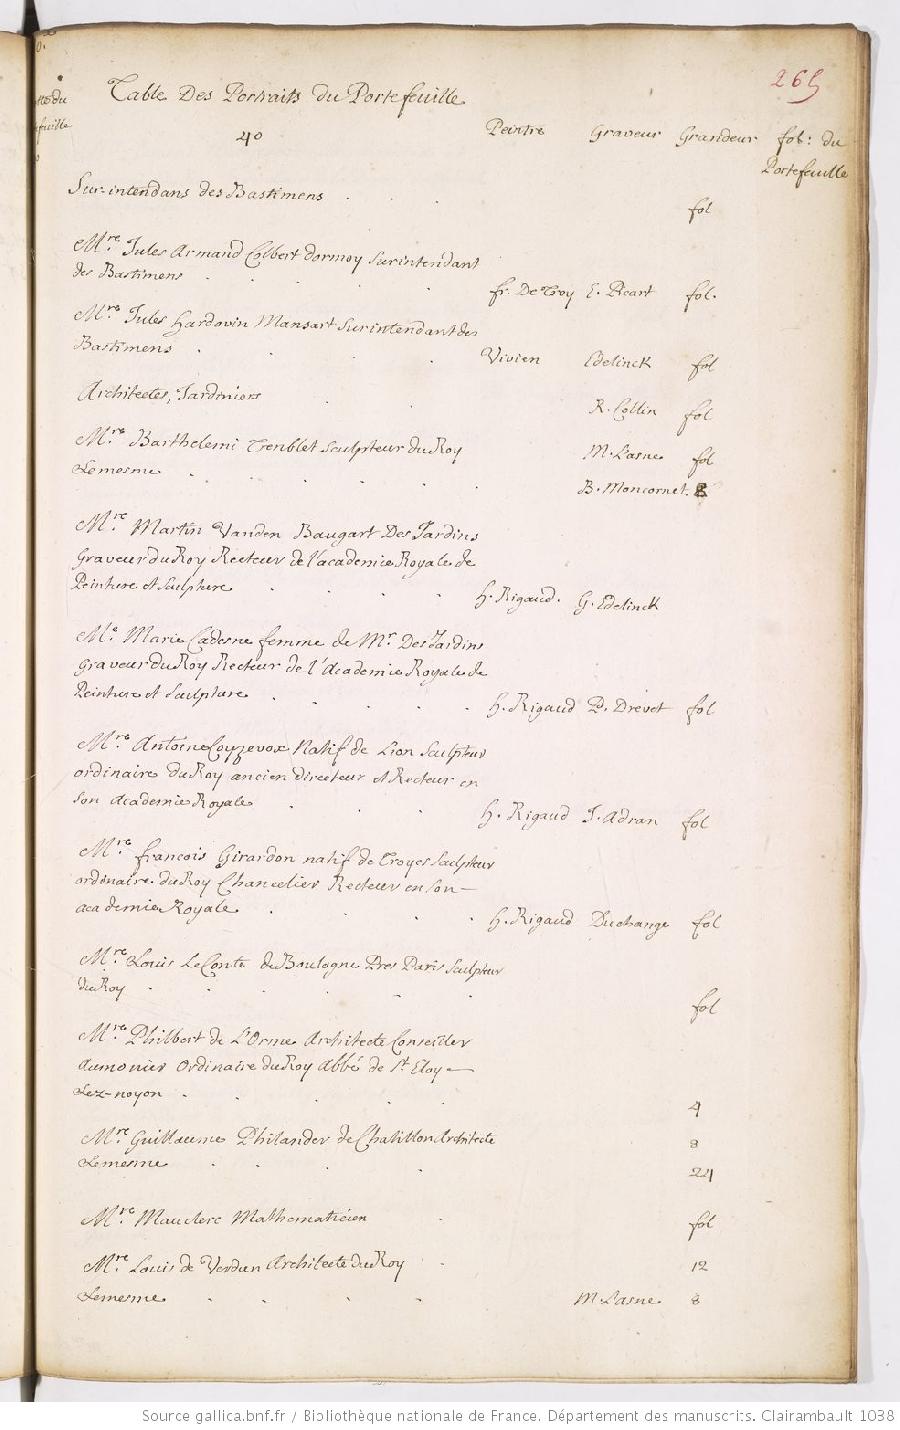 265
Table Des Portraits du Portefeuille
40
Peintre Graveur Grandeur fol: du Portefeuille
Sur-intendans des Bastimens . . fol
Mre. Jules Armand Colbert dormoy Surintendant
des Bastimens . . . . fr. De Troy E. Picart fol.
Mre. Jules hardovin Mansart Surintendant des
Bastimens . . . Vivien Edelinck fol
Architectes, Jardiniers . . R. Collin fol
Mre. Barthelemi Tremblet Sculpteur du Roy M. Lasne fol
Lemesme . . . . . B. Moncornet. 8
Mre. Martin Vanden Baugart Des Jardins
Graveur du Roy Recteur de l'academie Royale de
Peinture et Sculpture . . . . h. Rigaud. G. Edelinck
Me. Marie Cadesne femme de Mr. Des Jardins
Graveur du Roy Recteur de l'Academie Royale de
Peinture et Sculpture . . . . . h. Rigaud P. Drevet fol
Mre. Antoine Coyzevox Natif de Lion Sculpteur
ordinaire du Roy ancien directeur et Recteur en
son Academie Royale . . h. Rigaud J. Adran fol
Mre. francois Girardon natif de Troyes Sculpteur
ordinaire. du Roy Chancelier Recteur en son-
academie Royale . . . . h. Rigaud Duchange fol
Mre. Louis Le Conte de Boulogne Pres Paris Sculpteur
du Roy . . . . . fol
Mre. Philbert de L'Orme Architecte Conseiller
aumonier Ordinaire du Roy Abbé de St. Eloy-
Lez-noyon . . . . . 4
Mre. Guillaume Philander de Chatillon Architecte 8
Lemesme . . . . 24
Mre. Mauclerc Mathematicien . fol
Mre. Louis de Verdun Architecte du Roy . 12
Lemesme . . . . M. Lasne 8
Source gallica.bnf.fr / Bibliothèque nationale de France. Département des manuscrits. Clairambault 1038